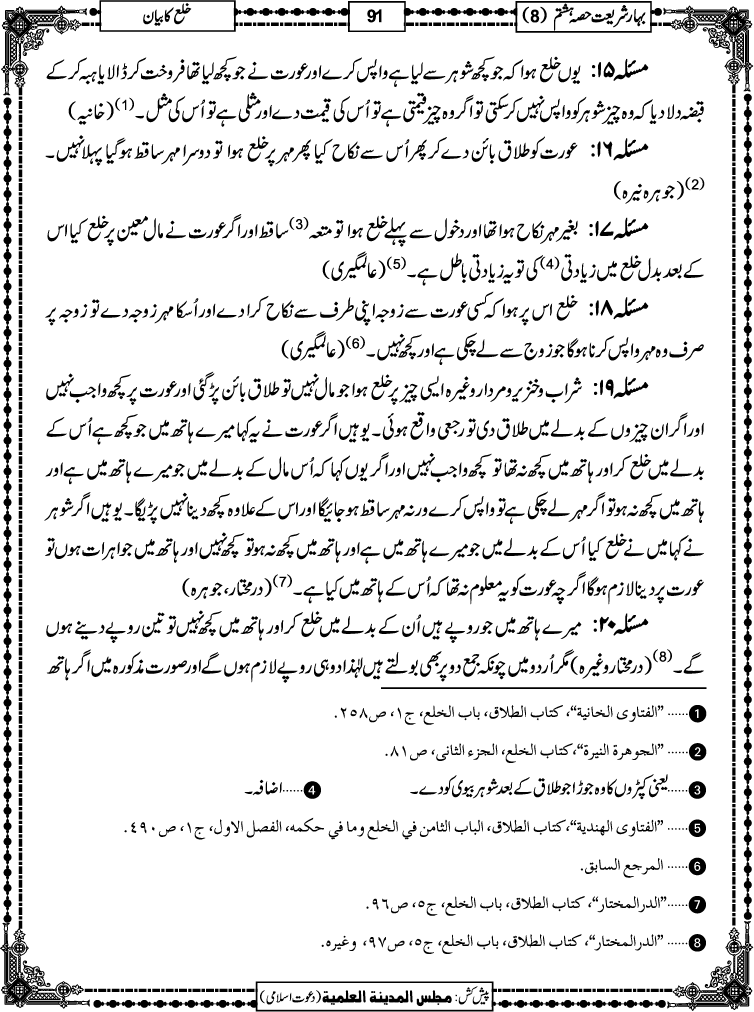 بہار شریعت حصہ ہشتم (8)
91
خلع کا بیان
مسئلہ ۱۵: یوں خلع ہوا کہ جو کچھ شوہر سے لیا ہے واپس کرے اور عورت نے جو کچھ لیا تھا فروخت کر ڈالا یا ہبہ کرکے
قبضہ دلا دیا کہ وہ چیز شوہر کو واپس نہیں کرسکتی تو اگر وہ چیز قیمتی ہے تو اُس کی قیمت دے اور مثلی ہے تو اُس کی مثل۔(1) (خانیہ)
مسئلہ ۱۶: عورت کو طلاق بائن دے کر پھر اُس سے نکاح کیا پھر مہر پر خلع ہوا تو دوسرا مہر ساقط ہوگیا پہلا نہیں۔
(2) (جوہرہ نیرہ)
مسئلہ ۱۷: بغیر مہر نکاح ہوا تھا اور دخول سے پہلے خلع ہوا تو متعہ(3) ساقط اور اگر عورت نے مال معین پر خلع کیا اس
کے بعد بدل خلع میں زیادتی(4) کی تو یہ زیادتی باطل ہے۔(5) (عالمگیری)
مسئلہ ۱۸: خلع اس پر ہوا کہ کسی عورت سے زوجہ اپنی طرف سے نکاح کرا دے اور اُسکا مہر زوجہ دے تو زوجہ پر
صرف وہ مہر واپس کرنا ہوگا جو زوج سے لے چکی ہے اور کچھ نہیں۔(6) (عالمگیری)
مسئلہ ۱۹: شراب و خنزیر و مردار وغیرہ ایسی چیز پر خلع ہوا جو مال نہیں تو طلاق بائن پڑگئی اور عورت پر کچھ واجب نہیں
اور اگر ان چیزوں کے بدلے میں طلاق دی تو رجعی واقع ہوئی۔ یوہیں اگر عورت نے یہ کہا میرے ہاتھ میں جو کچھ ہے اُس کے
بدلے میں خلع کر اور ہاتھ میں کچھ نہ تھا تو کچھ واجب نہیں اور اگر یوں کہا کہ اُس مال کے بدلے میں جو میرے ہاتھ میں ہے اور
ہاتھ میں کچھ نہ ہو تو اگر مہر لے چکی ہے تو واپس کرے ورنہ مہر ساقط ہوجائیگا اور اس کے علاوہ کچھ دینا نہیں پڑیگا۔ یوہیں اگر شوہر
نے کہا میں نے خلع کیا اُس کے بدلے میں جو میرے ہاتھ میں ہے اور ہاتھ میں کچھ نہ ہو تو کچھ نہیں اور ہاتھ میں جواہرات ہوں تو
عورت پر دینا لازم ہوگا اگرچہ عورت کو یہ معلوم نہ تھا کہ اُس کے ہاتھ میں کیا ہے۔(7) (درمختار، جوہرہ)
مسئلہ ۲۰: میرے ہاتھ میں جو روپے ہیں اُن کے بدلے میں خلع کر اور ہاتھ میں کچھ نہیں تو تین روپے دینے ہوں
گے۔(8) (درمختار وغیرہ) مگر اُردو میں چونکہ جمع دو پر بھی بولتے ہیں لہٰذا دو ہی روپے لازم ہوں گے اور صورت مذکورہ میں اگر ہاتھ
1 ...... ”الفتاوى الخانية“، كتاب الطلاق، باب الخلع، ج١، ص٢٥٨.
2 ...... ”الجوهرة النيرة“، كتاب الخلع، الجزء الثاني، ص٨١.
3 ...... یعنی کپڑوں کا وہ جوڑا جو طلاق کے بعد شوہر بیوی کو دے۔ 4 ...... اضافہ۔
5 ...... ”الفتاوى الهندية“، كتاب الطلاق، الباب الثامن في الخلع وما في حكمه، الفصل الاول، ج١، ص٤٩٠.
6 ...... المرجع السابق.
7 ...... ”الدرالمختار“، كتاب الطلاق، باب الخلع، ج٥، ص٩٦.
8 ...... ”الدرالمختار“، كتاب الطلاق، باب الخلع، ج٥، ص٩٧، وغيره.
پیش کش: مجلس المدينة العلمية (دعوت اسلامی)